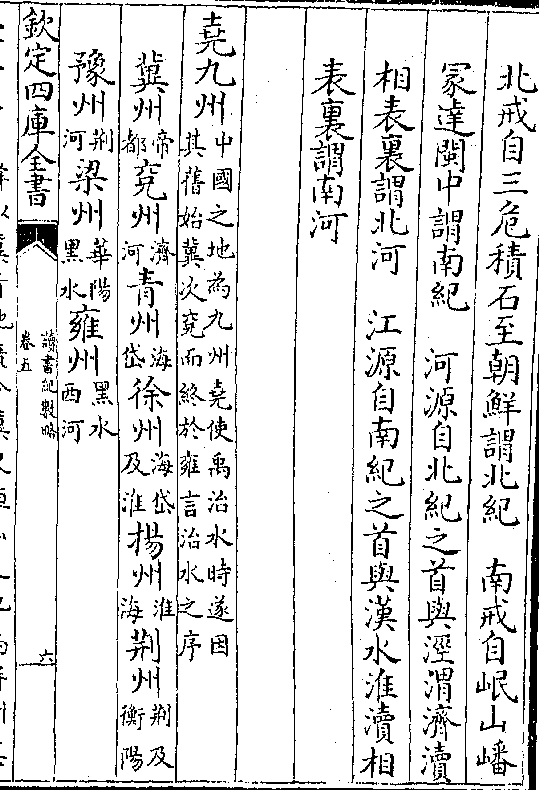 北戒自三危積石至朝鮮謂北紀　南戒自岷山嶓
冡達閩中謂南紀　河源自北紀之首與涇渭濟瀆
相表裏謂北河　江源自南紀之首與漢水淮瀆相
表裏謂南河
堯九州中國之地為九州堯使禹治水時遂因其舊始冀次兗而終於雍言治水之序
冀州帝都兗州濟河青州海岱徐州海岱及淮楊州淮海荆州荆及衡陽
豫州荆河梁州華陽黑水雍州黑水西河
欽定四庫全書
讀書紀數略
卷五
六